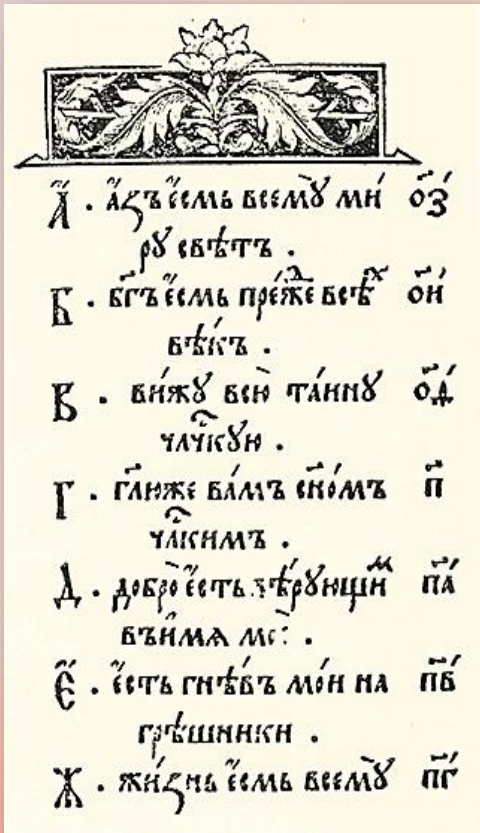 А҃ . а҆́зъ є҆́смь всемꙋ̀ ми́ ѻ҃з
рꙋ свѣ́тъ .
Б . бг҃ъ є҆́смь пре́жⷣе всѣⷯ ѻ҃и
вѣ́къ .
В . ви́жꙋ всю̀ та́инꙋ ѻ҃ѳ
члч҃кꙋю .
Г . гл҃юже ва́мъ сн҃о́мъ п҃
чл҃кимъ .
Д . добро̀ є҆́сть вѣ́рꙋющиⷨ п҃а
въ и҆́мѧ моѐ .
Є҆ . є҆́сть гнѣ́въ мо́и на п҃в
грѣ́шники .
Ж . жи́знь є҆́смь всемꙋ̀ п҃г